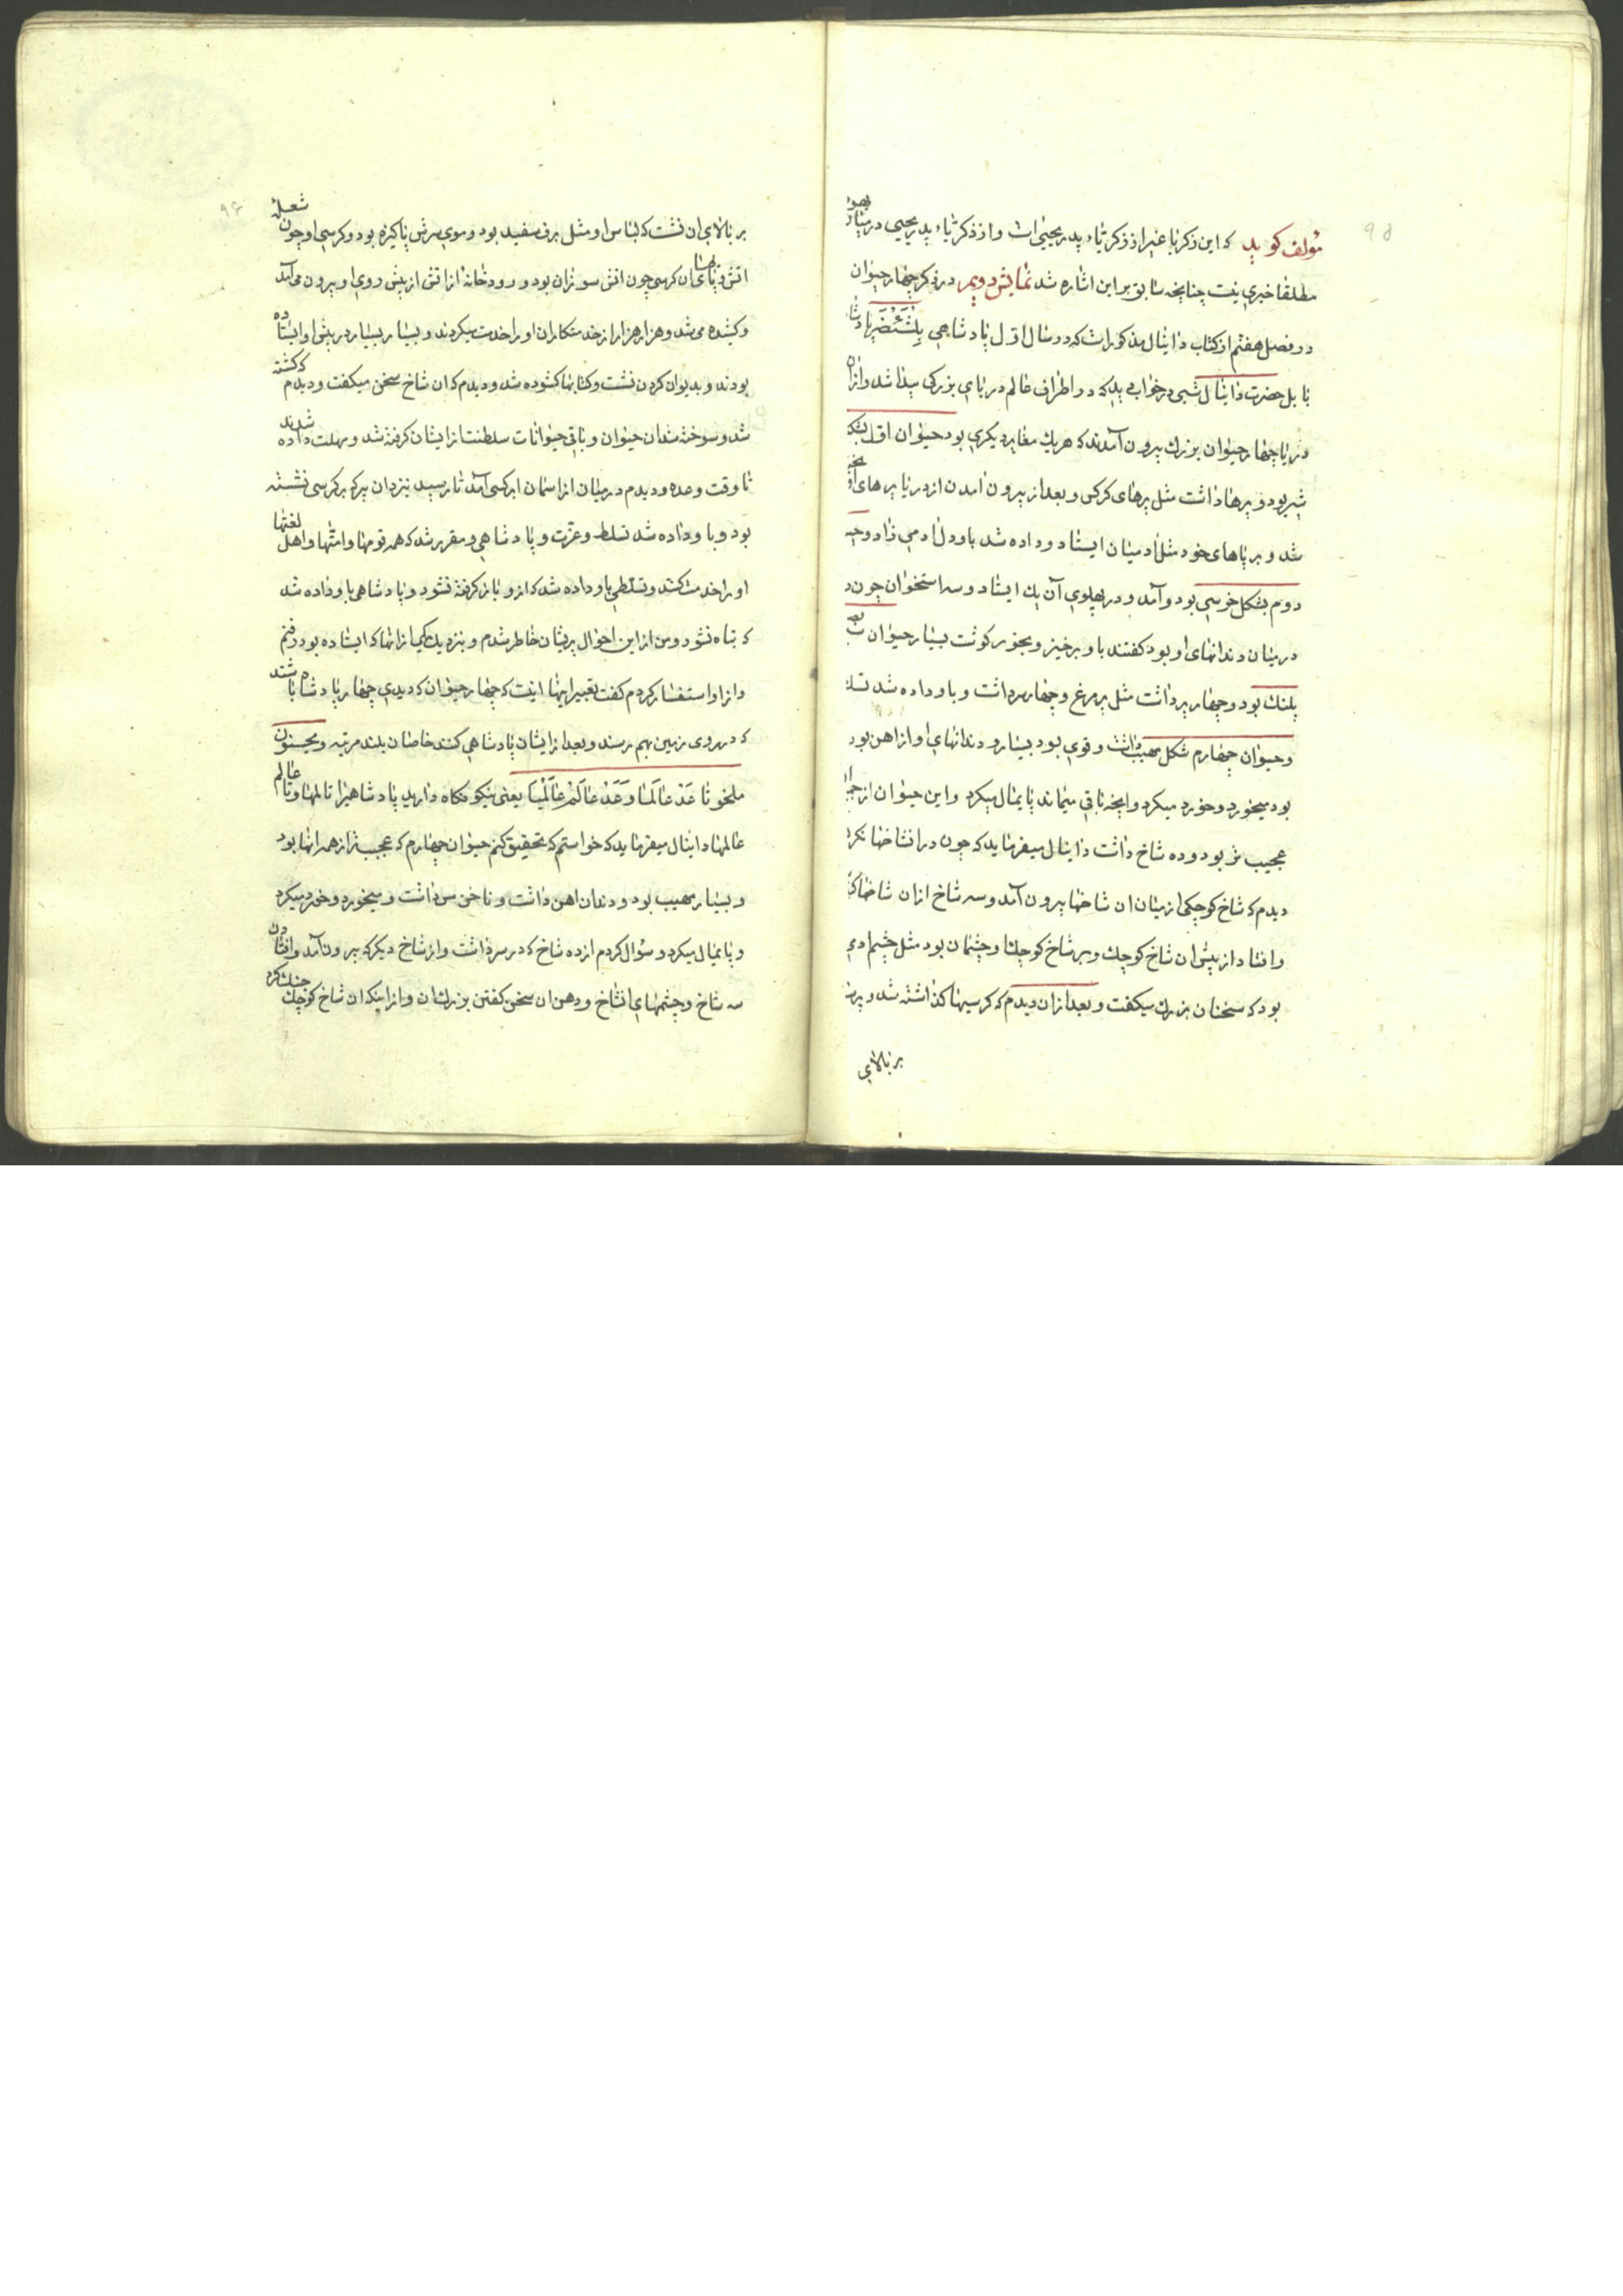 مؤلف كويد كه اين ذكريا غير از ذكرياء پدر يحيي است و از ذكرياء پدر يحيي در ميان يهود
مطلقا خبري نيست چنانچه سابق بر اين اشاره شد نمايش دويم در ذكر چهار حيوان
در فصل هفتم از كتاب دانيال مذكور است كه در سال اول پادشاهي بلشتضر پادشاه
بابل حضرت دانيال شبي در خواب ديد كه در اطراف عالم درياي بزركي پيدا شد و از آن
دريا چهار حيوان بزرك بيرون آمدند كه هر يك مغاير ديكري بود حيوان اول بشكل
شير بود و پرها داشت مثل پرهاي كركس و بعد از بيرون امدن از دريا پرهاي او
شد و بر پاهاي خود مثل ادميان ايستاد و داده شد باو دل ادمي زاد و حيوان
دوم بشكل خرسي بود و آمد و در پهلوي آن يك ايستاد و سه استخوان چون
در ميان دندانهاي او بود كفتند باو برخيز و بخور كوشت بسيار حيوان
پلنك بود و چهار پر داشت مثل پر مرغ و چهار سر داشت و باو داده شد تسلط
و حيوان چهارم شكل مهيب داشت و قوي بود بسيار و دندانهاي او از اهن بود
بود ميخورد و خورد ميكرد و انچه باقي ميماند پايمال ميكرد و اين حيوان از
عجيب تر بود و ده شاخ داشت دانيال ميفرمايد كه چون در انشاخها نكاه
ديدم كه شاخ كوچكي از ميان ان شاخها بيرون آمد و سه شاخ از ان شاخها
و افتاد از پيش ان شاخ كوچك و بر شاخ كوچك او چشمان بود مثل چشم ادمي
بود كه سخنان بزرك ميكفت و بعد از ان ديدم كه كرسيها كذاشته شد و پير
بر بالاي
بر بالاي ان نشست كه لباس او مثل برف سفيد بود و موي سرش پاكيزه بود و كرسي او چون شعله
اتش و پاهاي ان كرسي چون اتش سوزان بود و رودخانه از اتش از پيش روي او بيرون مي آمد
و كشيده مي شد و هزار هزار از خدمتكاران او را خدمت ميكردند و بسيار بسيار در پيش او ايستاده
بودند و بديوان كردن نشست و كتابها كشوده شد و ديدم كه ان شاخ سخن ميكفت و ديدم كه كشته
شد و سوخته شد ان حيوان و باقي حيوانات سلطنت از ايشان كرفته شد و مهلت داده شدند
تا وقت وعده و ديدم در ميان از اسمان ابر كسي آمد تا رسيد بنزد ان پير كه بر كرسي نشسته
بود و باو داده شد تسلط و عزت و پادشاهي و مقرر شد كه همه قومها و امتها و اهل لغتها
او را خدمت كنند و تسلطي باو داده شد كه از و باز كرفته نشود و پادشاهي باو داده شد
كه تباه نشود و من از اين احوال پريشان خاطر شدم و بنزديك يكي از انها كه ايستاده بود رفتم
و از او استفسار كردم كفت تعبير اينها اينست كه چهار حيوان كه ديدي چهار پادشاه باشند
كه در روي زمين بهم رسند و بعد از ايشان پادشاهي كنند خاصان بلند مرتبه ويحسنون
ملخوثا عَدْ عالَما وَعَدْ عالَمْ عالَمْيا يعني نيكو نكاه داريد پادشاهي را تا عالمها و تا عالم
عالمها دانيال ميفرمايد كه خواستم كه تحقيق كنم حيوان چهارم كه عجيب تر از همه انها بود
و بسيار مهيب بود و دندان اهن داشت و ناخن مس داشت و ميخورد و خورد ميكرد
و پايمال ميكرد و سؤال كردم از ده شاخ كه در سر داشت و از شاخ ديكر كه بيرون آمد و افتادن
سه شاخ و چشمهاي انشاخ و دهن ان سخن كفتن بزرك ان و از اينكه ان شاخ كوچك جنك كرد